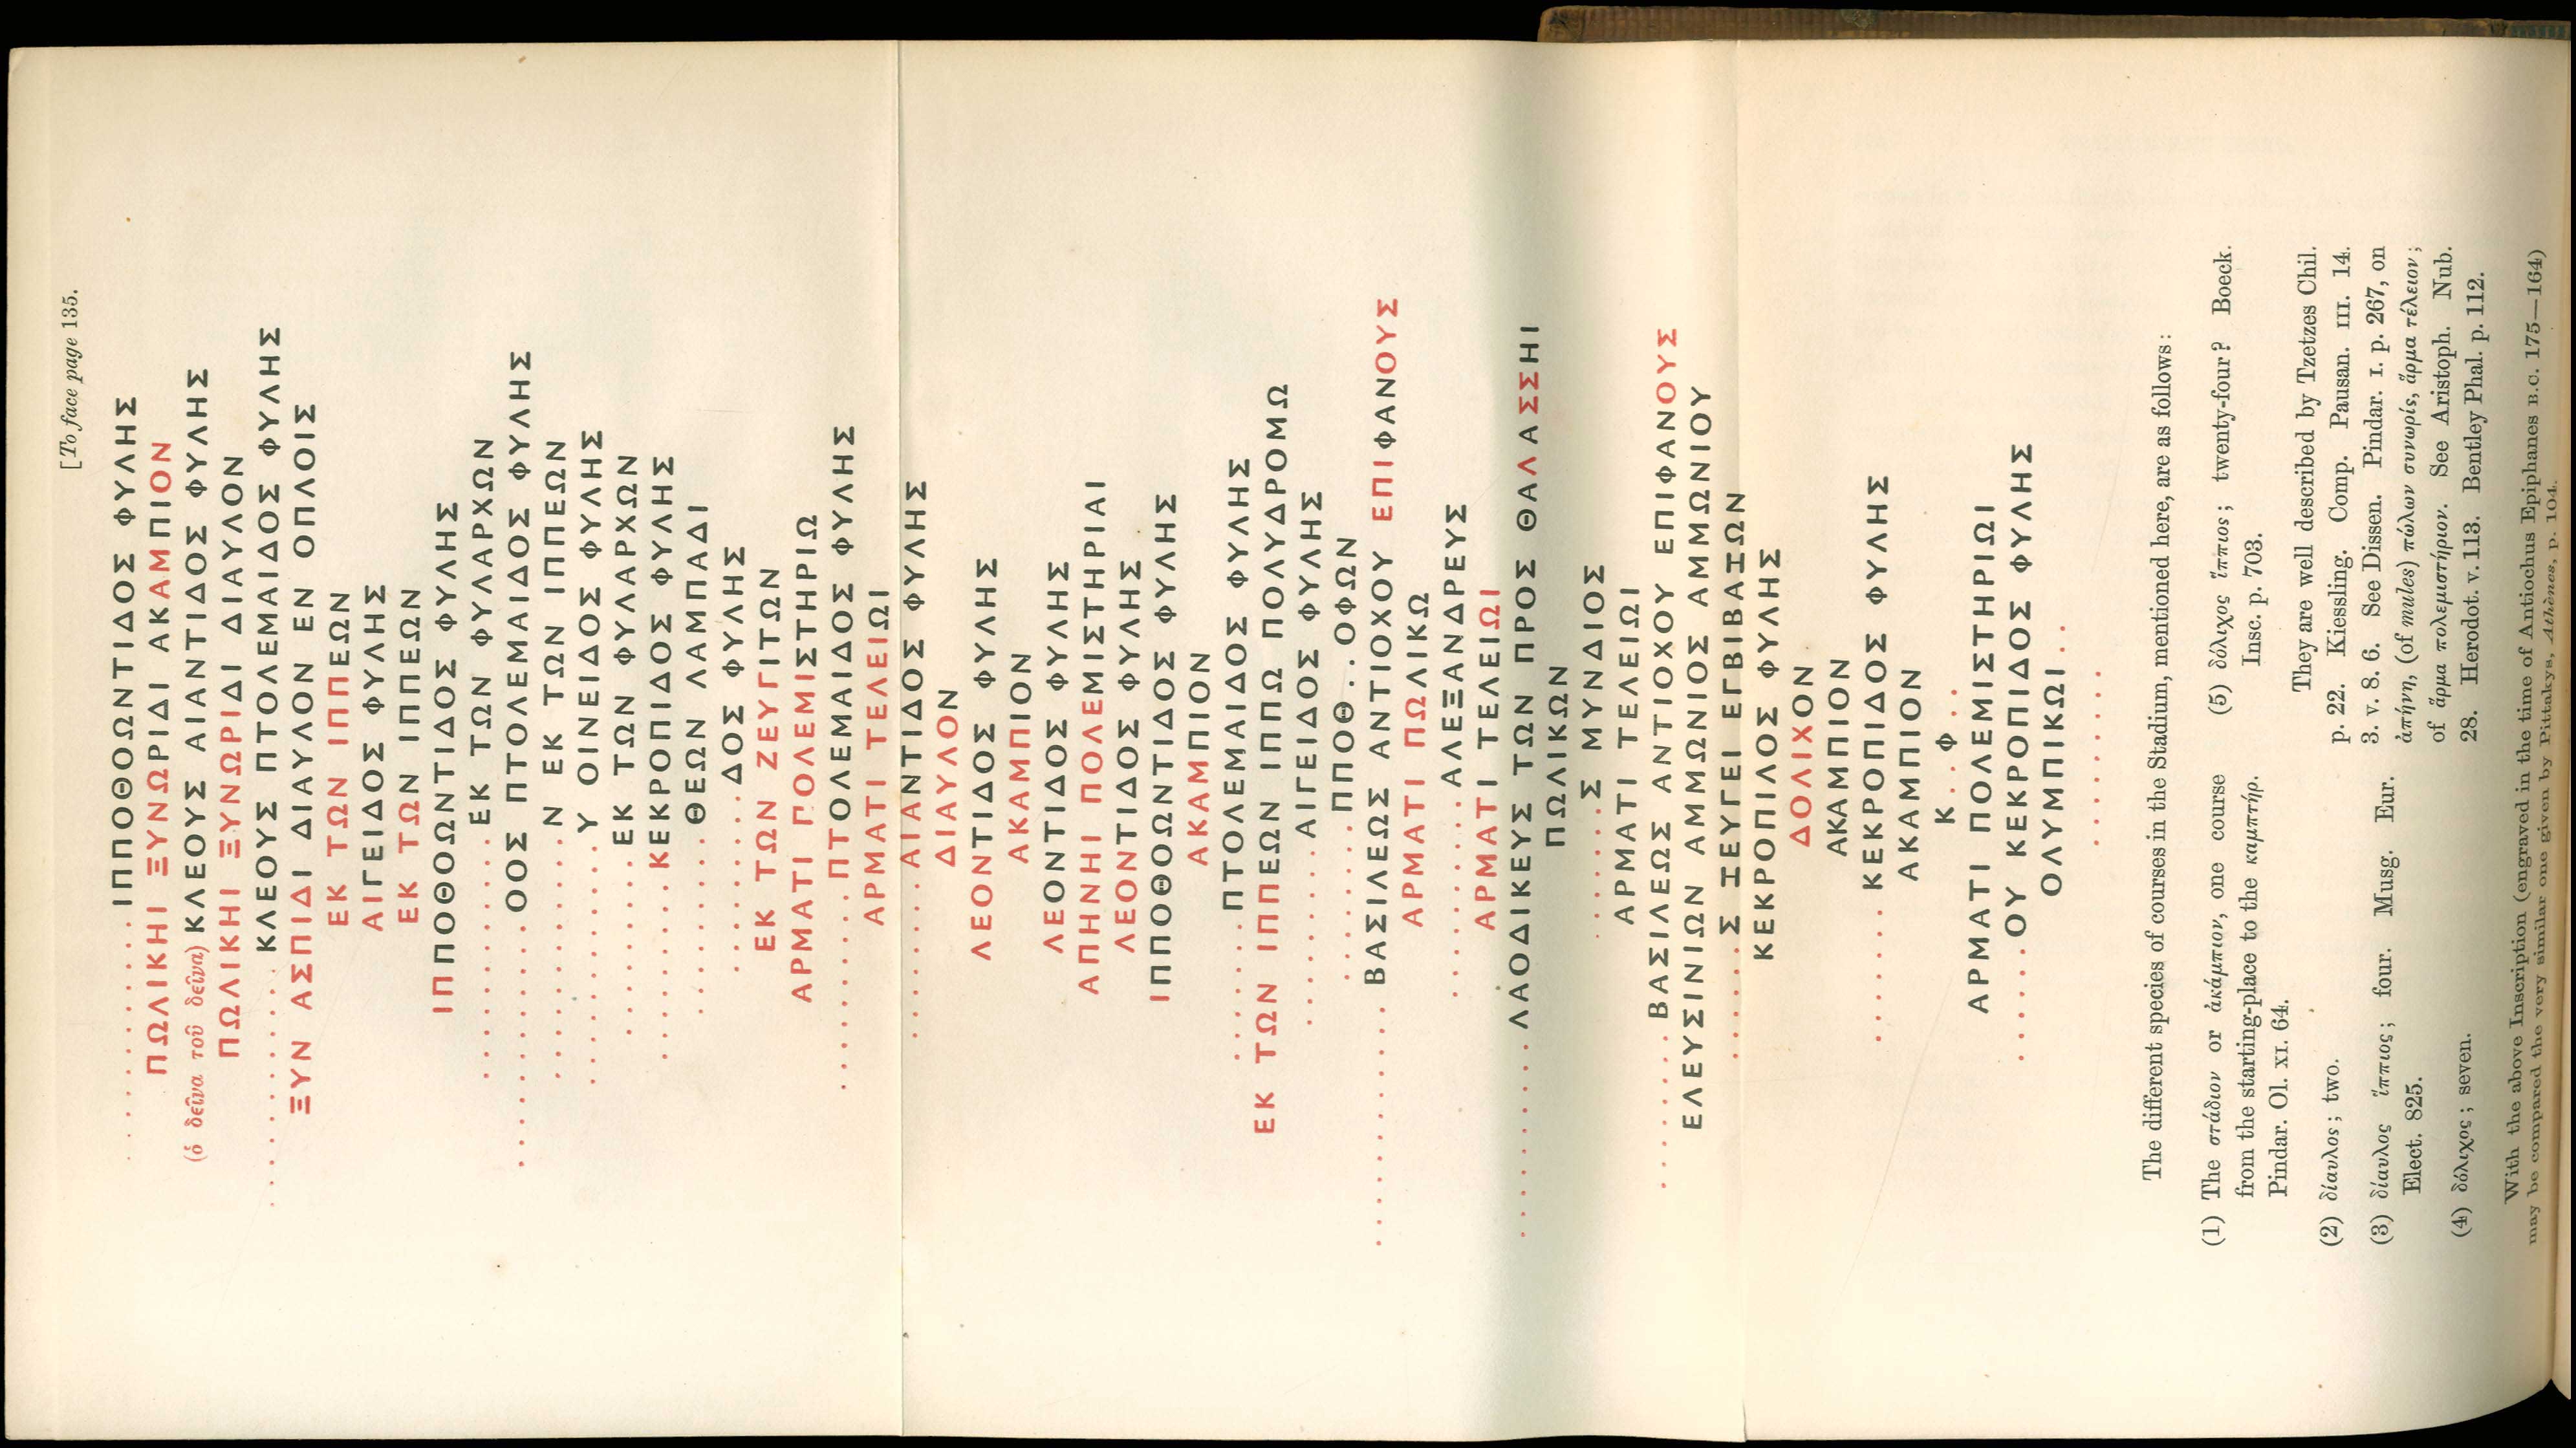 [To face page 135.
. . . . . . . . . . . . ΙΠΠΟΘΟΩΝΤΙΔΟΣ ΦΥΛΗΣ
ΠΩΛΙΚΗΙ ΞΥΝΩΡΙΔΙ ΑΚΑΜΠΙΟΝ
(ὁ δεῖνα τοῦ δεῖνα) ΚΛΕΟΥΣ ΑΙΑΝΤΙΔΟΣ ΦΥΛΗΣ
ΠΩΛΙΚΗΙ ΞΥΝΩΡΙΔΙ ΔΙΑΥΛΟΝ
. . . . . . . . . . . . ΚΛΕΟΥΣ ΠΤΟΛΕΜΑΙΔΟΣ ΦΥΛΗΣ
ΞΥΝ ΑΣΠΙΔΙ ΔΙΑΥΛΟΝ ΕΝ ΟΠΛΟΙΣ
ΕΚ ΤΩΝ ΙΠΠΕΩΝ
ΑΙΓΕΙΔΟΣ ΦΥΛΗΣ
ΕΚ ΤΩΝ ΙΠΠΕΩΝ
ΙΠΠΟΘΟΩΝΤΙΔΟΣ ΦΥΛΗΣ
. . . . . . . . . . . . ΕΚ ΤΩΝ ΦΥΛΑΡΧΩΝ
. . . . . . . . . . . . ΟΟΣ ΠΤΟΛΕΜΑΙΔΟΣ ΦΥΛΗΣ
. . . . . . . . . . . . Ν ΕΚ ΤΩΝ ΙΠΠΕΩΝ
. . . . . . . . . . . . Υ ΟΙΝΕΙΔΟΣ ΦΥΛΗΣ
. . . . . . . . . ΕΚ ΤΩΝ ΦΥΛΑΡΧΩΝ
. . . . . . . . . ΚΕΚΡΟΠΙΔΟΣ ΦΥΛΗΣ
. . . . . . . . . ΘΕΩΝ ΛΑΜΠΑΔΙ
. . . . . . . . . ΔΟΣ ΦΥΛΗΣ
ΕΚ ΤΩΝ ΖΕΥΓΙΤΩΝ
ΑΡΜΑΤΙ ΠΟΛΕΜΙΣΤΗΡΙΩ
. . . . . . . . . ΠΤΟΛΕΜΑΙΔΟΣ ΦΥΛΗΣ
ΑΡΜΑΤΙ ΤΕΛΕΙΩΙ
. . . . . . . . . ΑΙΑΝΤΙΔΟΣ ΦΥΛΗΣ
ΔΙΑΥΛΟΝ
ΛΕΟΝΤΙΔΟΣ ΦΥΛΗΣ
ΑΚΑΜΠΙΟΝ
ΛΕΟΝΤΙΔΟΣ ΦΥΛΗΣ
ΑΠΗΝΗΙ ΠΟΛΕΜΙΣΤΗΡΙΑΙ
ΛΕΟΝΤΙΔΟΣ ΦΥΛΗΣ
ΙΠΠΟΘΟΩΝΤΙΔΟΣ ΦΥΛΗΣ
ΑΚΑΜΠΙΟΝ
. . . . . . . ΠΤΟΛΕΜΑΙΔΟΣ ΦΥΛΗΣ
ΕΚ ΤΩΝ ΙΠΠΕΩΝ ΙΠΠΩ ΠΟΛΥΔΡΟΜΩ
. . . . . . . . . ΑΙΓΕΙΔΟΣ ΦΥΛΗΣ
. . . . . . . . ΠΠΟΘ. . ΟΦΩΝ
. . . . . . . . . . . . ΒΑΣΙΛΕΩΣ ΑΝΤΙΟΧΟΥ ΕΠΙΦΑΝΟΥΣ
ΑΡΜΑΤΙ ΠΩΛΙΚΩ
. . . . . . . . . ΑΛΕΞΑΝΔΡΕΥΣ
ΑΡΜΑΤΙ ΤΕΛΕΙΩΙ
. . . . . . . . . . . ΛΑΟΔΙΚΕΥΣ ΤΩΝ ΠΡΟΣ ΘΑΛΑΣΣΗΙ
ΠΩΛΙΚΩΝ
. . . . . . Σ ΜΥΝΔΙΟΣ
ΑΡΜΑΤΙ ΤΕΛΕΙΩΙ
. . . . . . . . ΒΑΣΙΛΕΩΣ ΑΝΤΙΟΧΟΥ ΕΠΙΦΑΝΟΥΣ
ΕΛΕΥΣΙΝΙΩΝ ΑΜΜΩΝΙΟΣ ΑΜΜΩΝΙΟΥ
. . . . . . Σ ΙΕΥΓΕΙ ΕΓΒΙΒΑΙΩΝ
ΚΕΚΡΟΠΙΛΟΣ ΦΥΛΗΣ
ΔΟΛΙΧΟΝ
ΑΚΑΜΠΙΟΝ
. . . . . . ΚΕΚΡΟΠΙΔΟΣ ΦΥΛΗΣ
ΑΚΑΜΠΙΟΝ
Κ . . Φ . .
ΑΡΜΑΤΙ ΠΟΛΕΜΙΣΤΗΡΙΩΙ
. . . . . . ΟΥ ΚΕΚΡΟΠΙΔΟΣ ΦΥΛΗΣ
ΟΛΥΜΠΙΚΩΙ . .
. . . . . . . .
The different species of courses in the Stadium, mentioned here, are as follows:
(1) The στάδιον or ἀκάμπιον, one course
from the starting-place to the καμπτήρ.
Pindar. Ol. XI. 64.
(2) δίαυλος; two.
(3) δίαυλος ἵππιος; four. Musg. Eur.
Elect. 825.
(4) δόλιχος; seven.
(5) δόλιχος ἵππιος; twenty-four? Boeck.
Insc. p. 703.
They are well described by Tzetzes Chil.
p. 22. Kiessling. Comp. Pausan. III. 14.
3. v. 8. 6. See Dissen. Pindar. I. p. 267, on
ἀπήνη, (of mules) πώλων συνωρίς, ἅρμα τέλειον;
of ἅρμα πολεμιστήριον. See Aristoph. Nub.
28. Herodot. v. 113. Bentley Phal. p. 112.
With the above Inscription (engraved in the time of Antiochus Epiphanes B.C. 175—164)
may be compared the very similar one given by Pittakys, Athènes, p. 104.